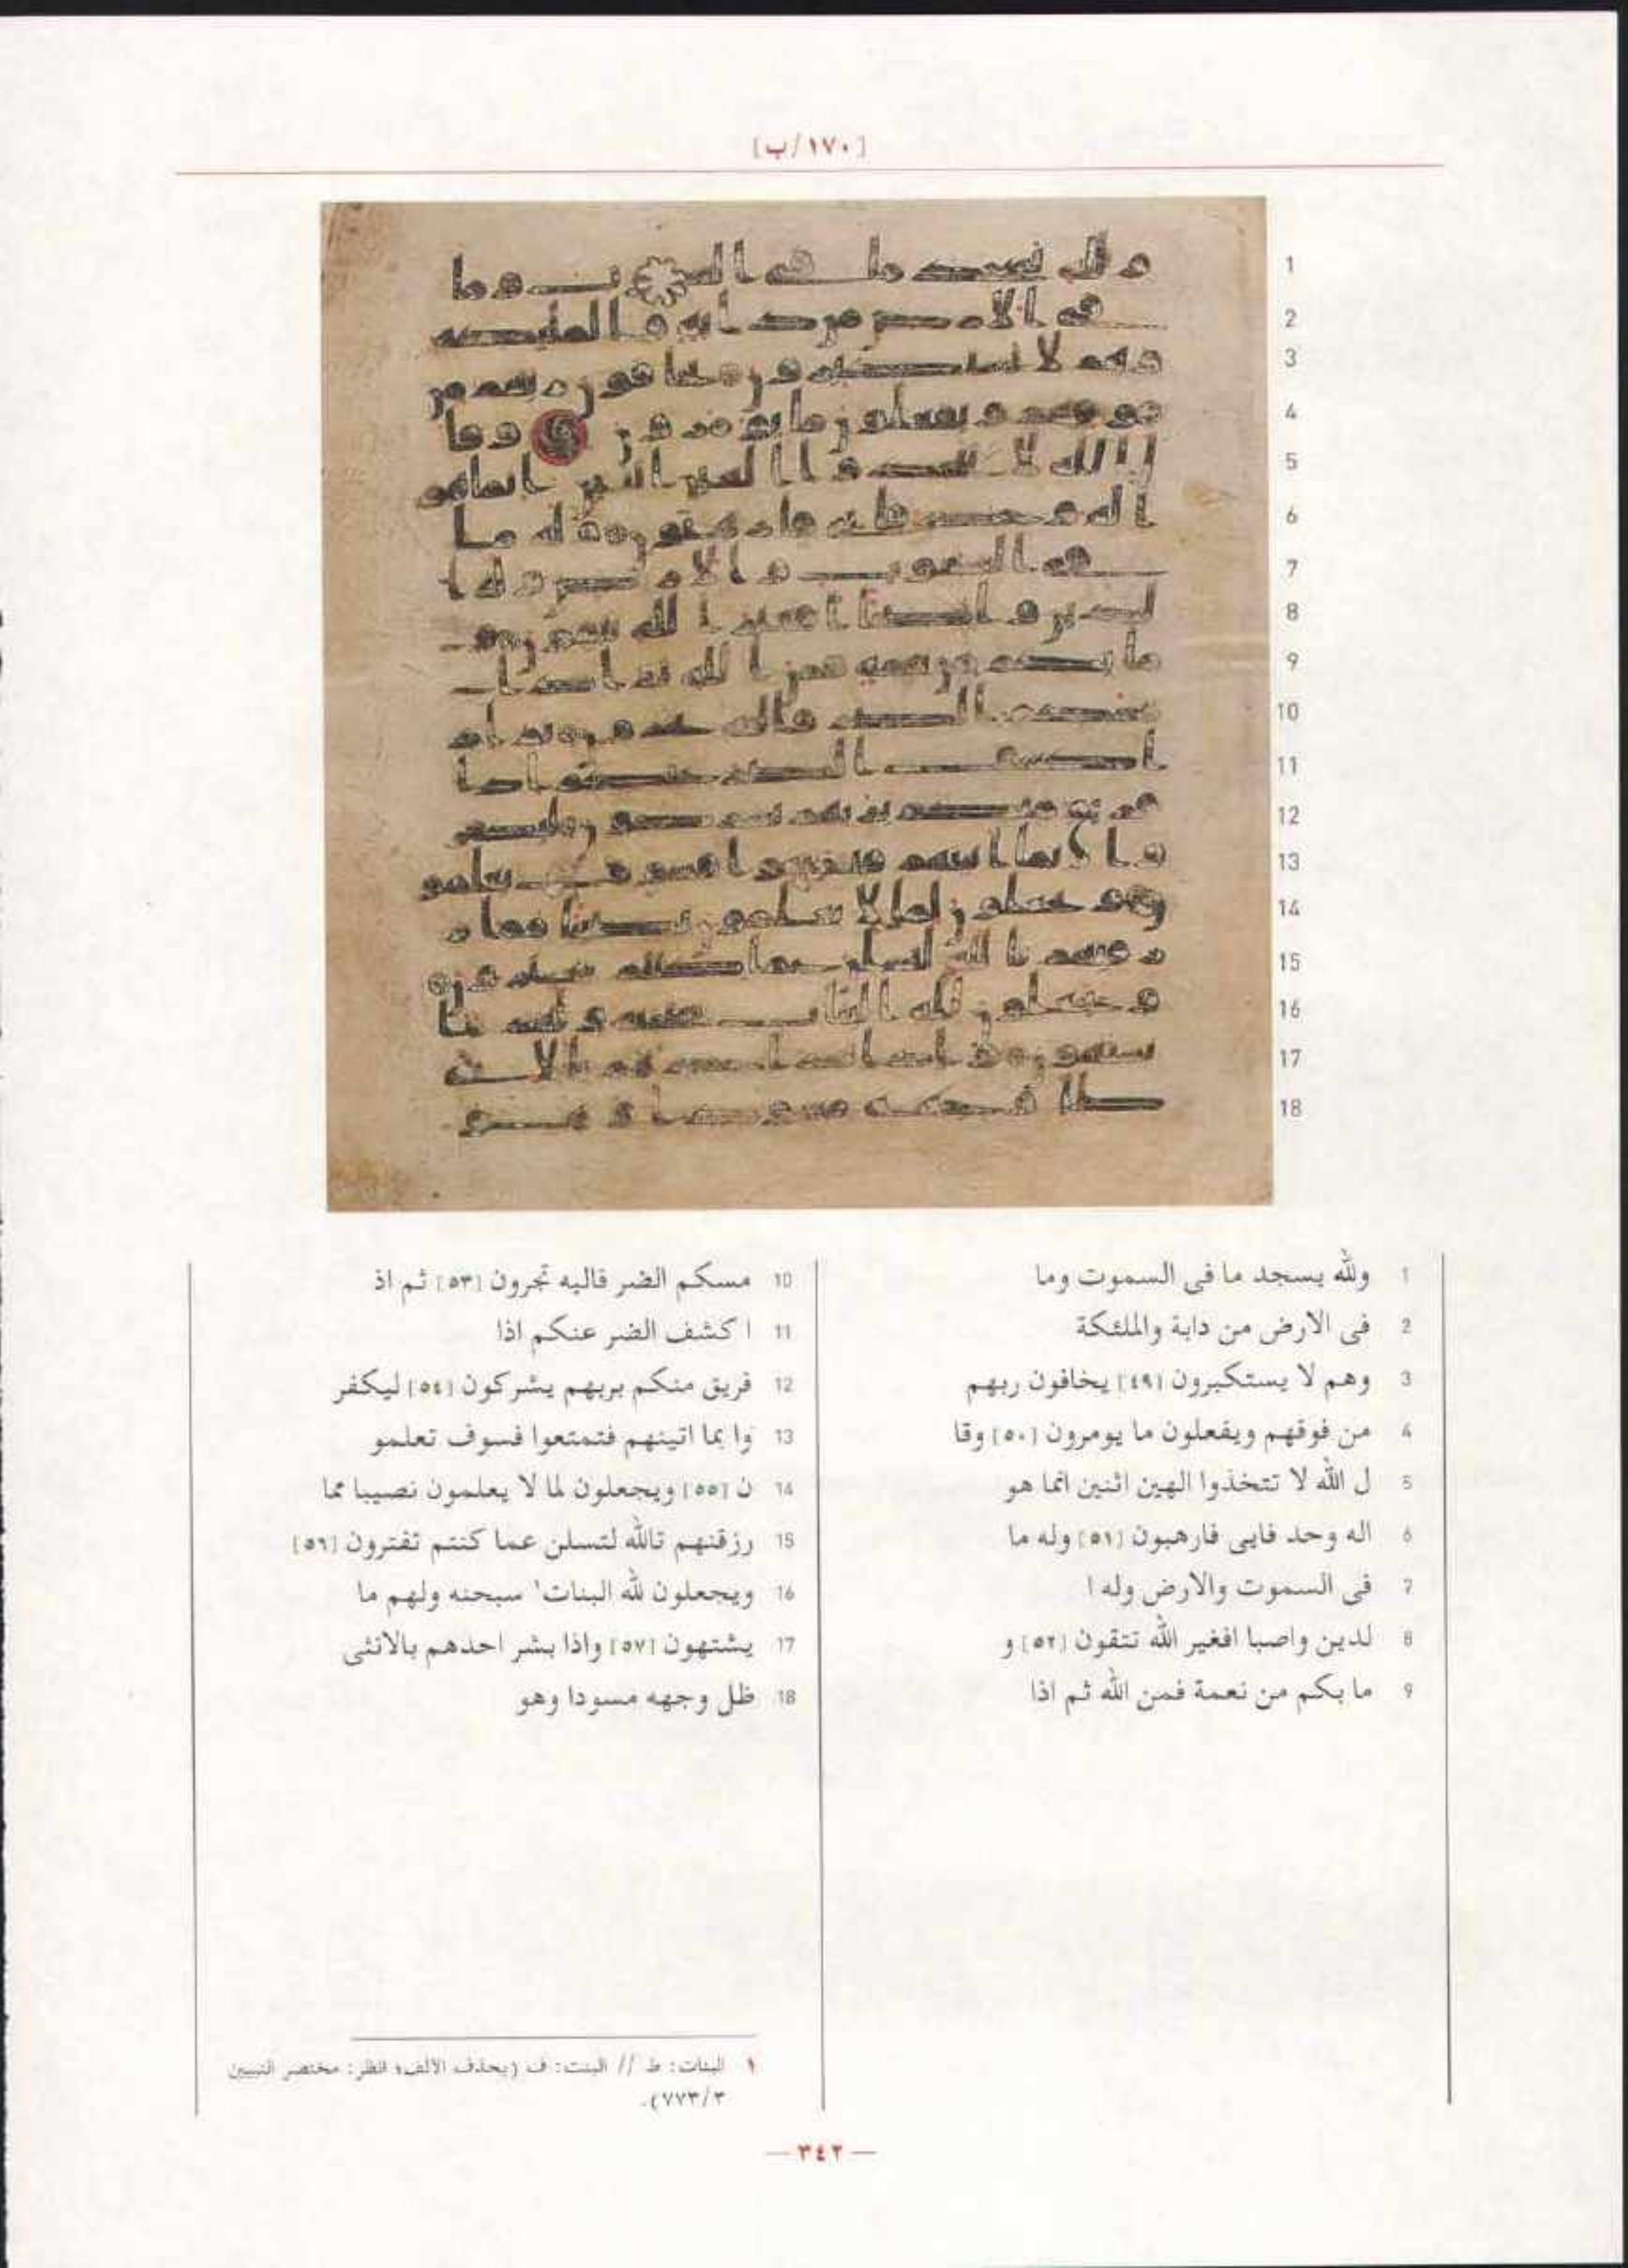 [١٧٠/ب]
1
2
3
4
5
6
7
8
9
10
11
12
13
14
15
16
17
18
1 ولله يسجد ما فى السموت وما
2 فى الارض من دابة والملئكة
3 وهم لا يستكبرون [٤٩] يخافون ربهم
4 من فوقهم ويفعلون ما يومرون [٥٠] وقا
5 ل الله لا تتخذوا الهين اثنين انما هو
6 اله وحد فايى فارهبون [٥١] وله ما
7 فى السموت والارض وله ا
8 لدين واصبا افغير الله تتقون [٥٢] و
9 ما بكم من نعمة فمن الله ثم اذا
10 مسكم الضر فاليه تجرون [٥٣] ثم اذ
11 ا كشف الضر عنكم اذا
12 فريق منكم بربهم يشركون [٥٤] ليكفر
13 وا بما اتينهم فتمتعوا فسوف تعلمو
14 ن [٥٥] ويجعلون لما لا يعلمون نصيبا مما
15 رزقنهم تالله لتسلن عما كنتم تفترون [٥٦]
16 ويجعلون لله البنات١ سبحنه ولهم ما
17 يشتهون [٥٧] واذا بشر احدهم بالانثى
18 ظل وجهه مسودا وهو
١ البنات: ط // البنت: ف (بحذف الألف؛ انظر: مختصر التبيين
٧٧٣/٣).
— ٣٤٢ —